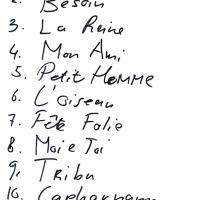 2. Besoin
3. La Reine
4. Mon Ami
5. Petit HOMME
6. L'oiseau
7. Fête Folie
8. Moi e Toi
9. Tribu
10. Capharnaum